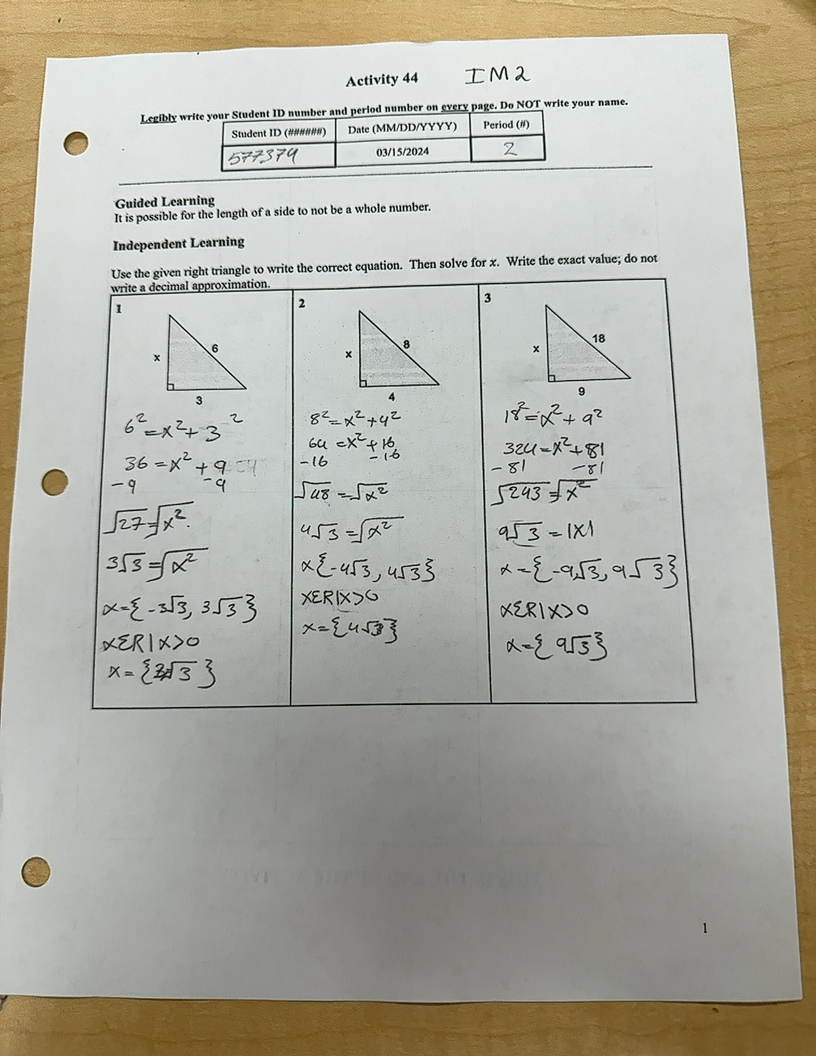 Activity 44 IM2
Legibly write your Student ID number and period number on every page. Do NOT write your name.
Student ID (######) Date (MM/DD/YYYY) Period (#)
577379 03/15/2024 2
Guided Learning
It is possible for the length of a side to not be a whole number.
Independent Learning
Use the given right triangle to write the correct equation. Then solve for x. Write the exact value; do not
write a decimal approximation.
1
x 6
3
6² = x² + 3²
36 = x² + 9
-9 -9
√27 = √x².
3√3 = √x²
x = {-3√3, 3√3}
xƐR|x>0
x = {3√3}
2
x 8
4
8² = x² + 4²
64 = x² + 16
-16 -16
√48 = √x²
4√3 = √x²
x{-4√3, 4√3}
xƐR|x>0
x = {4√3}
3
x 18
9
18² = x² + 9²
324 = x² + 81
-81 -81
√243 = √x²
9√3 = |x|
x = {-9√3, 9√3}
xƐR|x>0
x = {9√3}
1